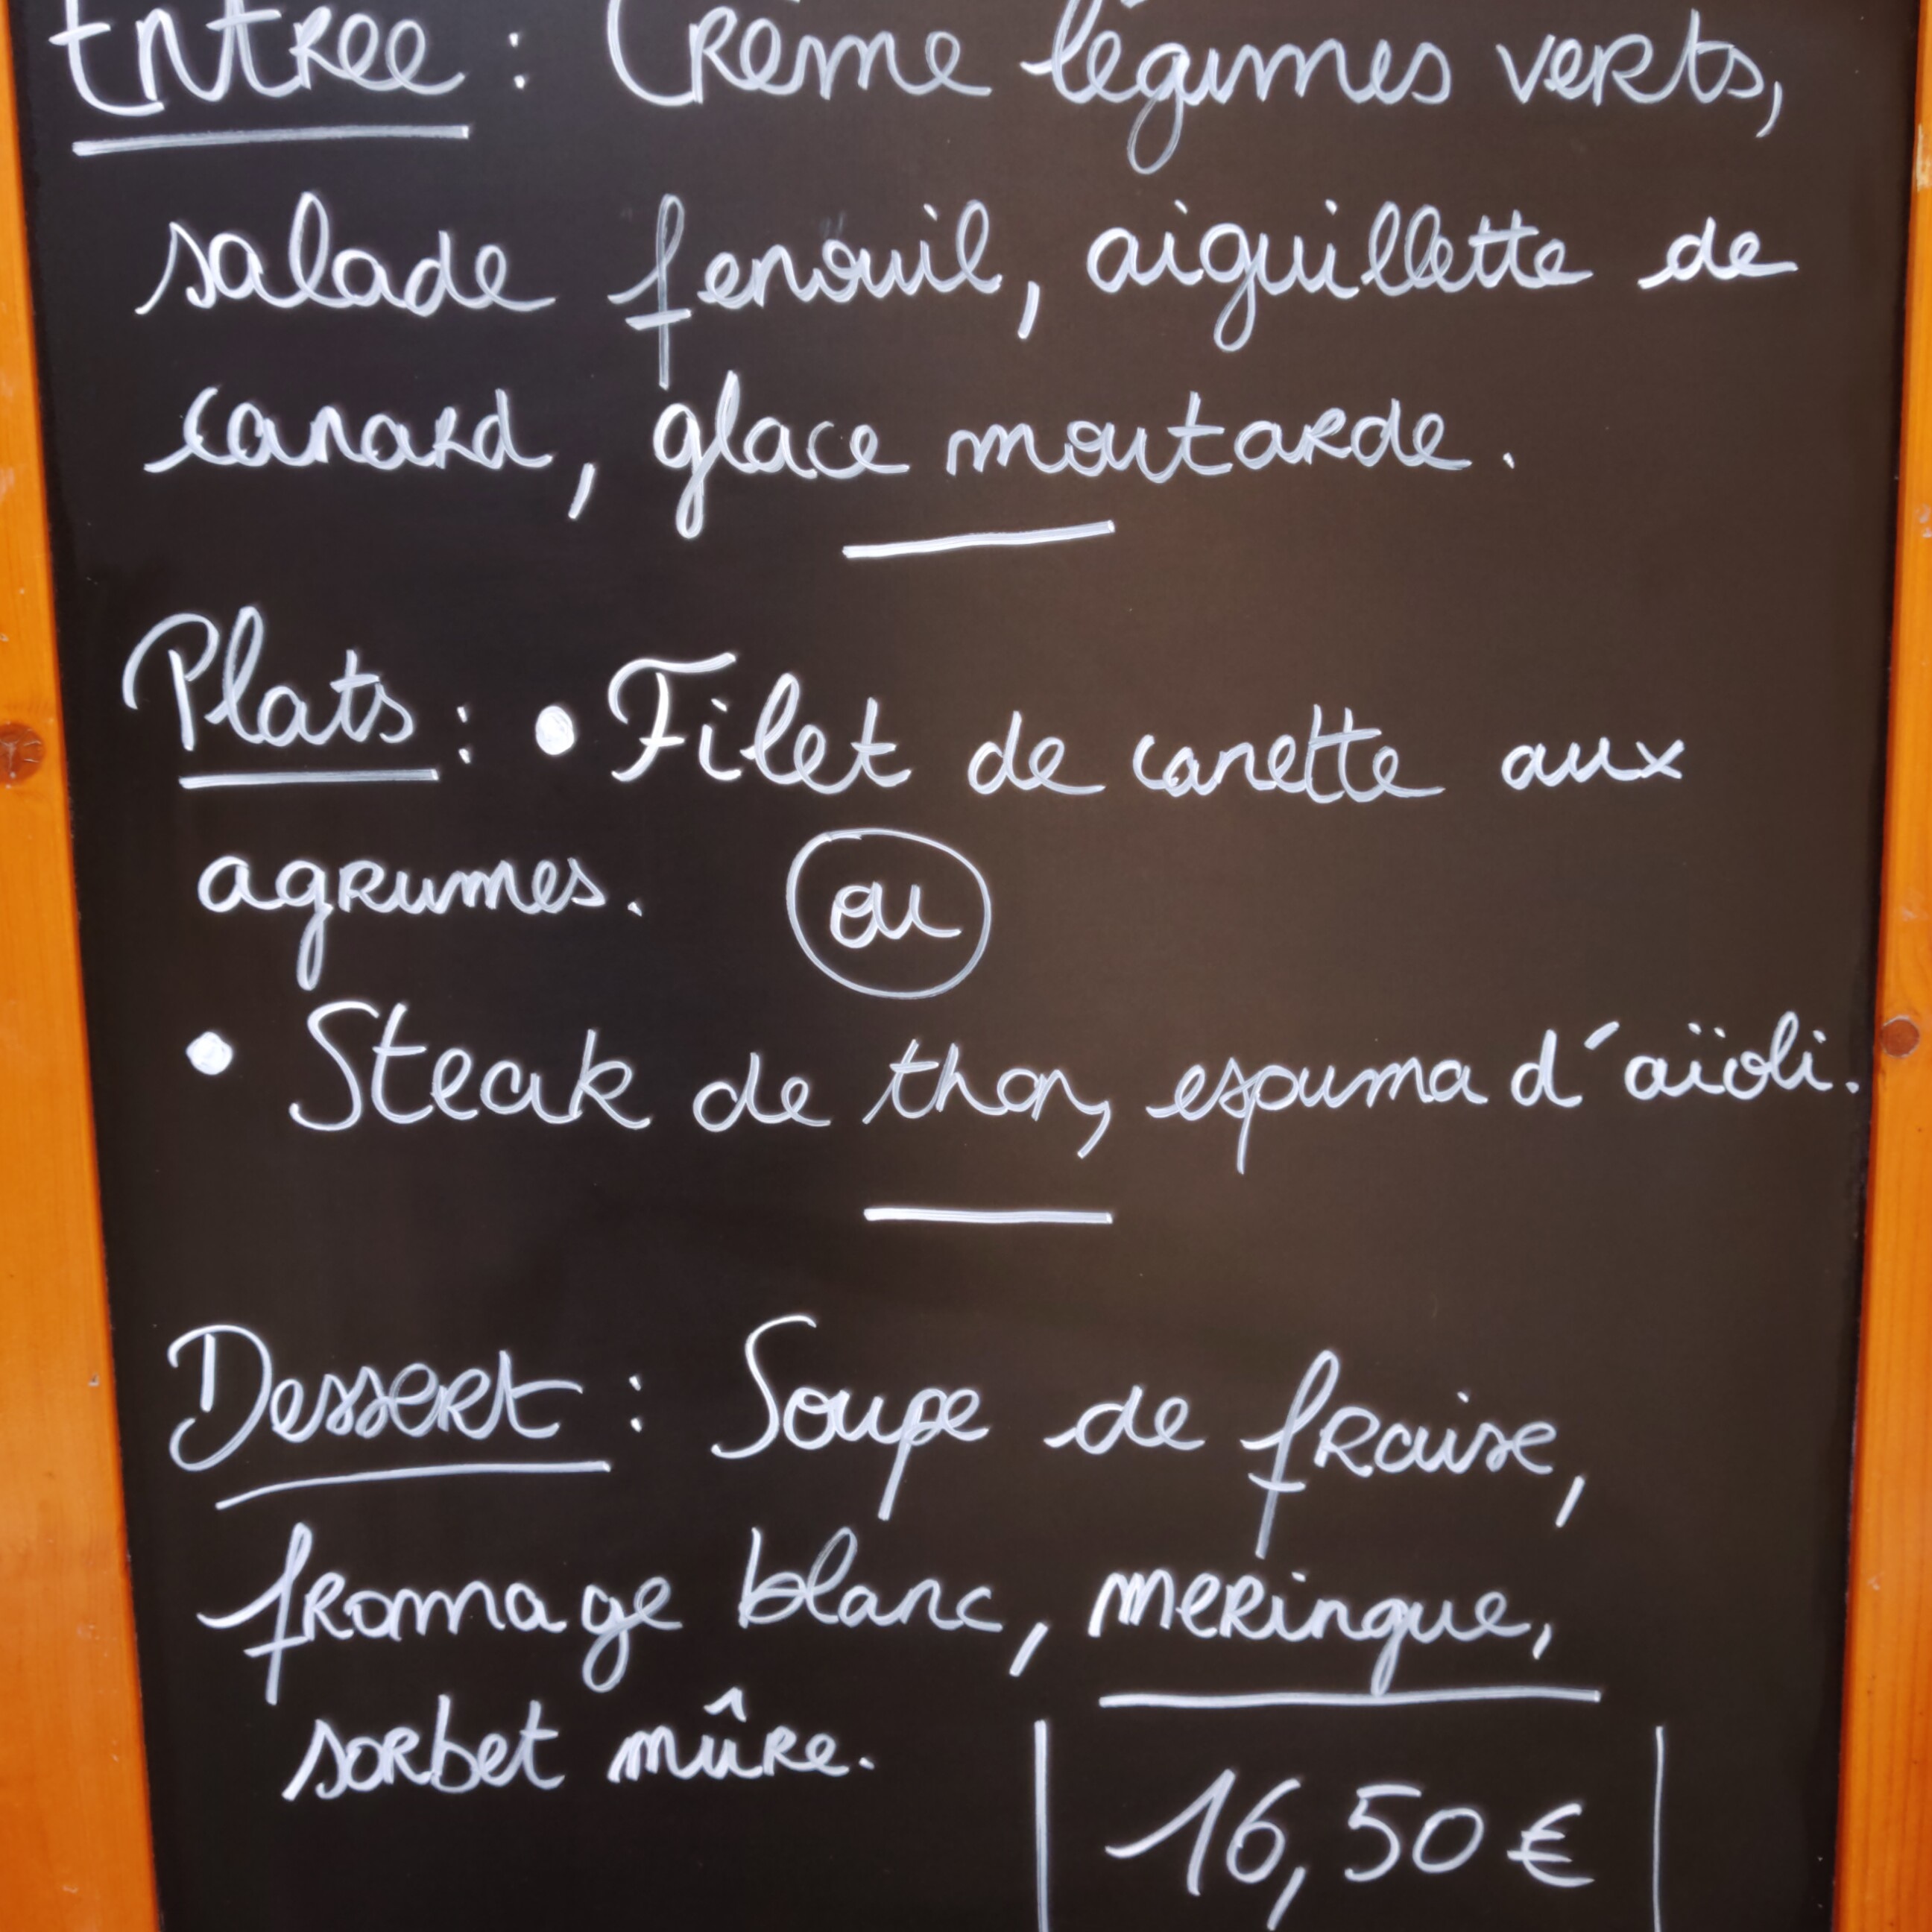 Entrée : Crème légumes verts,
salade fenouil, aiguillette de
canard, glace moutarde.
Plats : • Filet de canette aux
agrumes. ou
• Steak de thon, espuma d'aïoli.
Dessert : Soupe de fraise,
fromage blanc, meringue,
sorbet mûre.
16,50 €